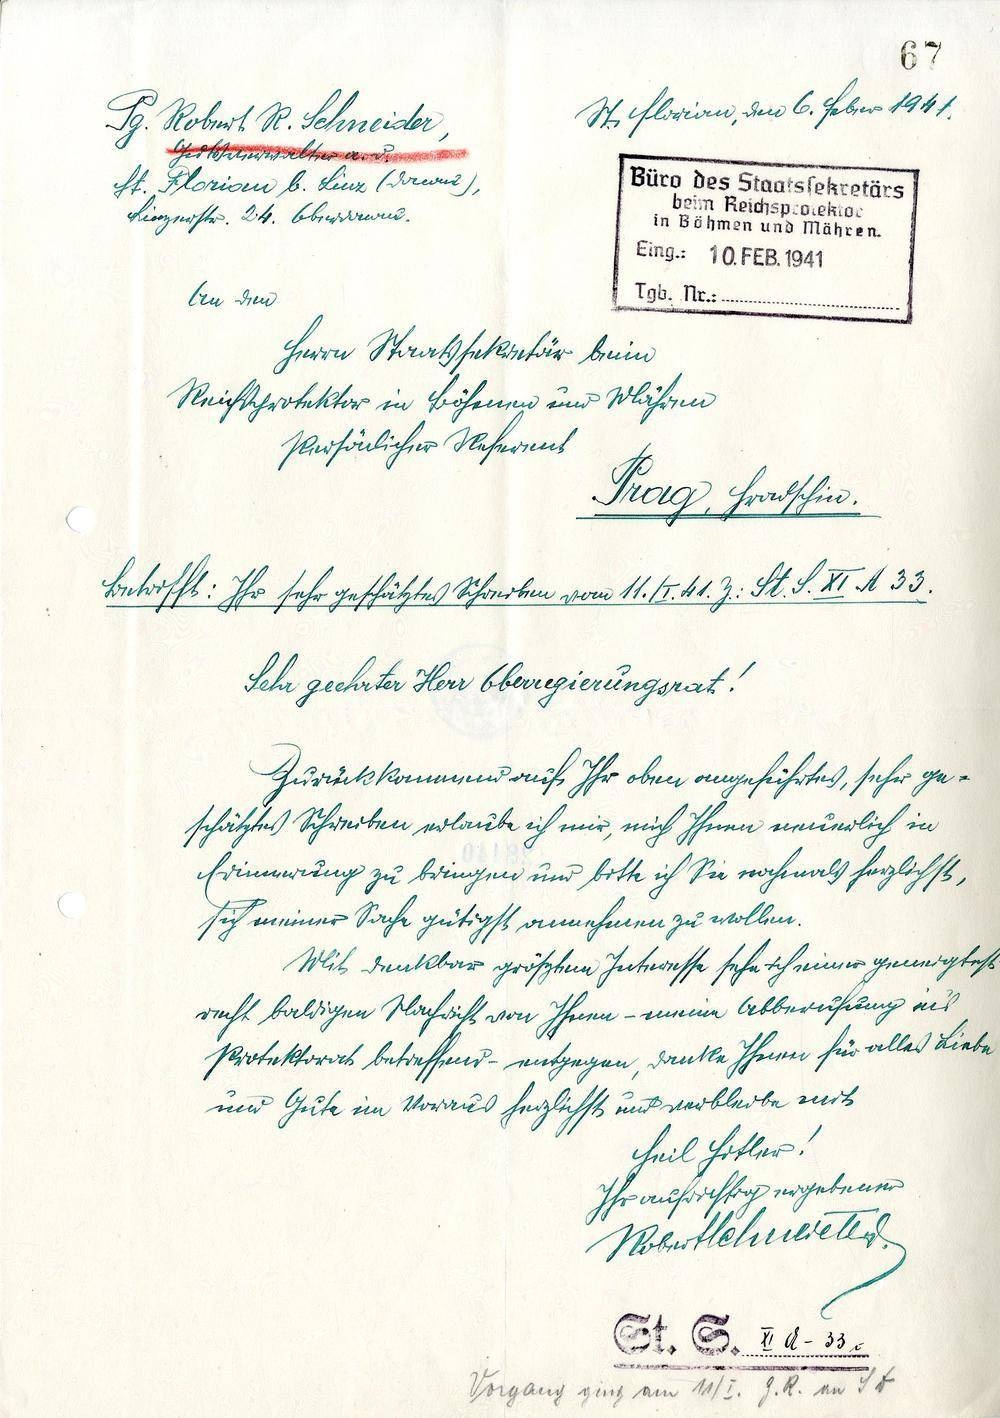 67
Pg. Robert R. Schneider,
Gutsverwalter a. D.
St. Florian b. Linz (Donau),
Linzerstr. 24. Oberdonau.
St. Florian, den 6. Feber 1941.
Büro des Staatssekretärs
beim Reichsprotektor
in Böhmen und Mähren.
Eing.: 10. FEB. 1941
Tgb. Nr.:
An den
Herrn Staatssekretär beim
Reichsprotektor in Böhmen und Mähren
Persönlicher Referent
Prag, Hradschin.
Betrifft: Ihr sehr geschätztes Schreiben vom 11./I. 41. Z: St. S. XI A 33.
Sehr geehrter Herr Oberregierungsrat!
Zurückkommend auf Ihr oben angeführtes, sehr ge-
schätztes Schreiben erlaube ich mir, mich Ihnen neuerlich in
Erinnerung zu bringen und bitte ich Sie nochmals herzlichst,
sich meiner Sache gütigst annehmen zu wollen.
Mit denkbar größtem Interesse sehe ich einer geneigtest
recht baldigen Nachricht von Ihnen - meine Abberufung ins
Protektorat betreffend - entgegen, danke Ihnen für alles Liebe
und Gute im Voraus herzlichst und verbleibe mit
Heil Hitler!
Ihr aufrichtig ergebener
Robert Schneider
St. S. XI A - 33
Vorgang ging am 11/I. g.R. an SD